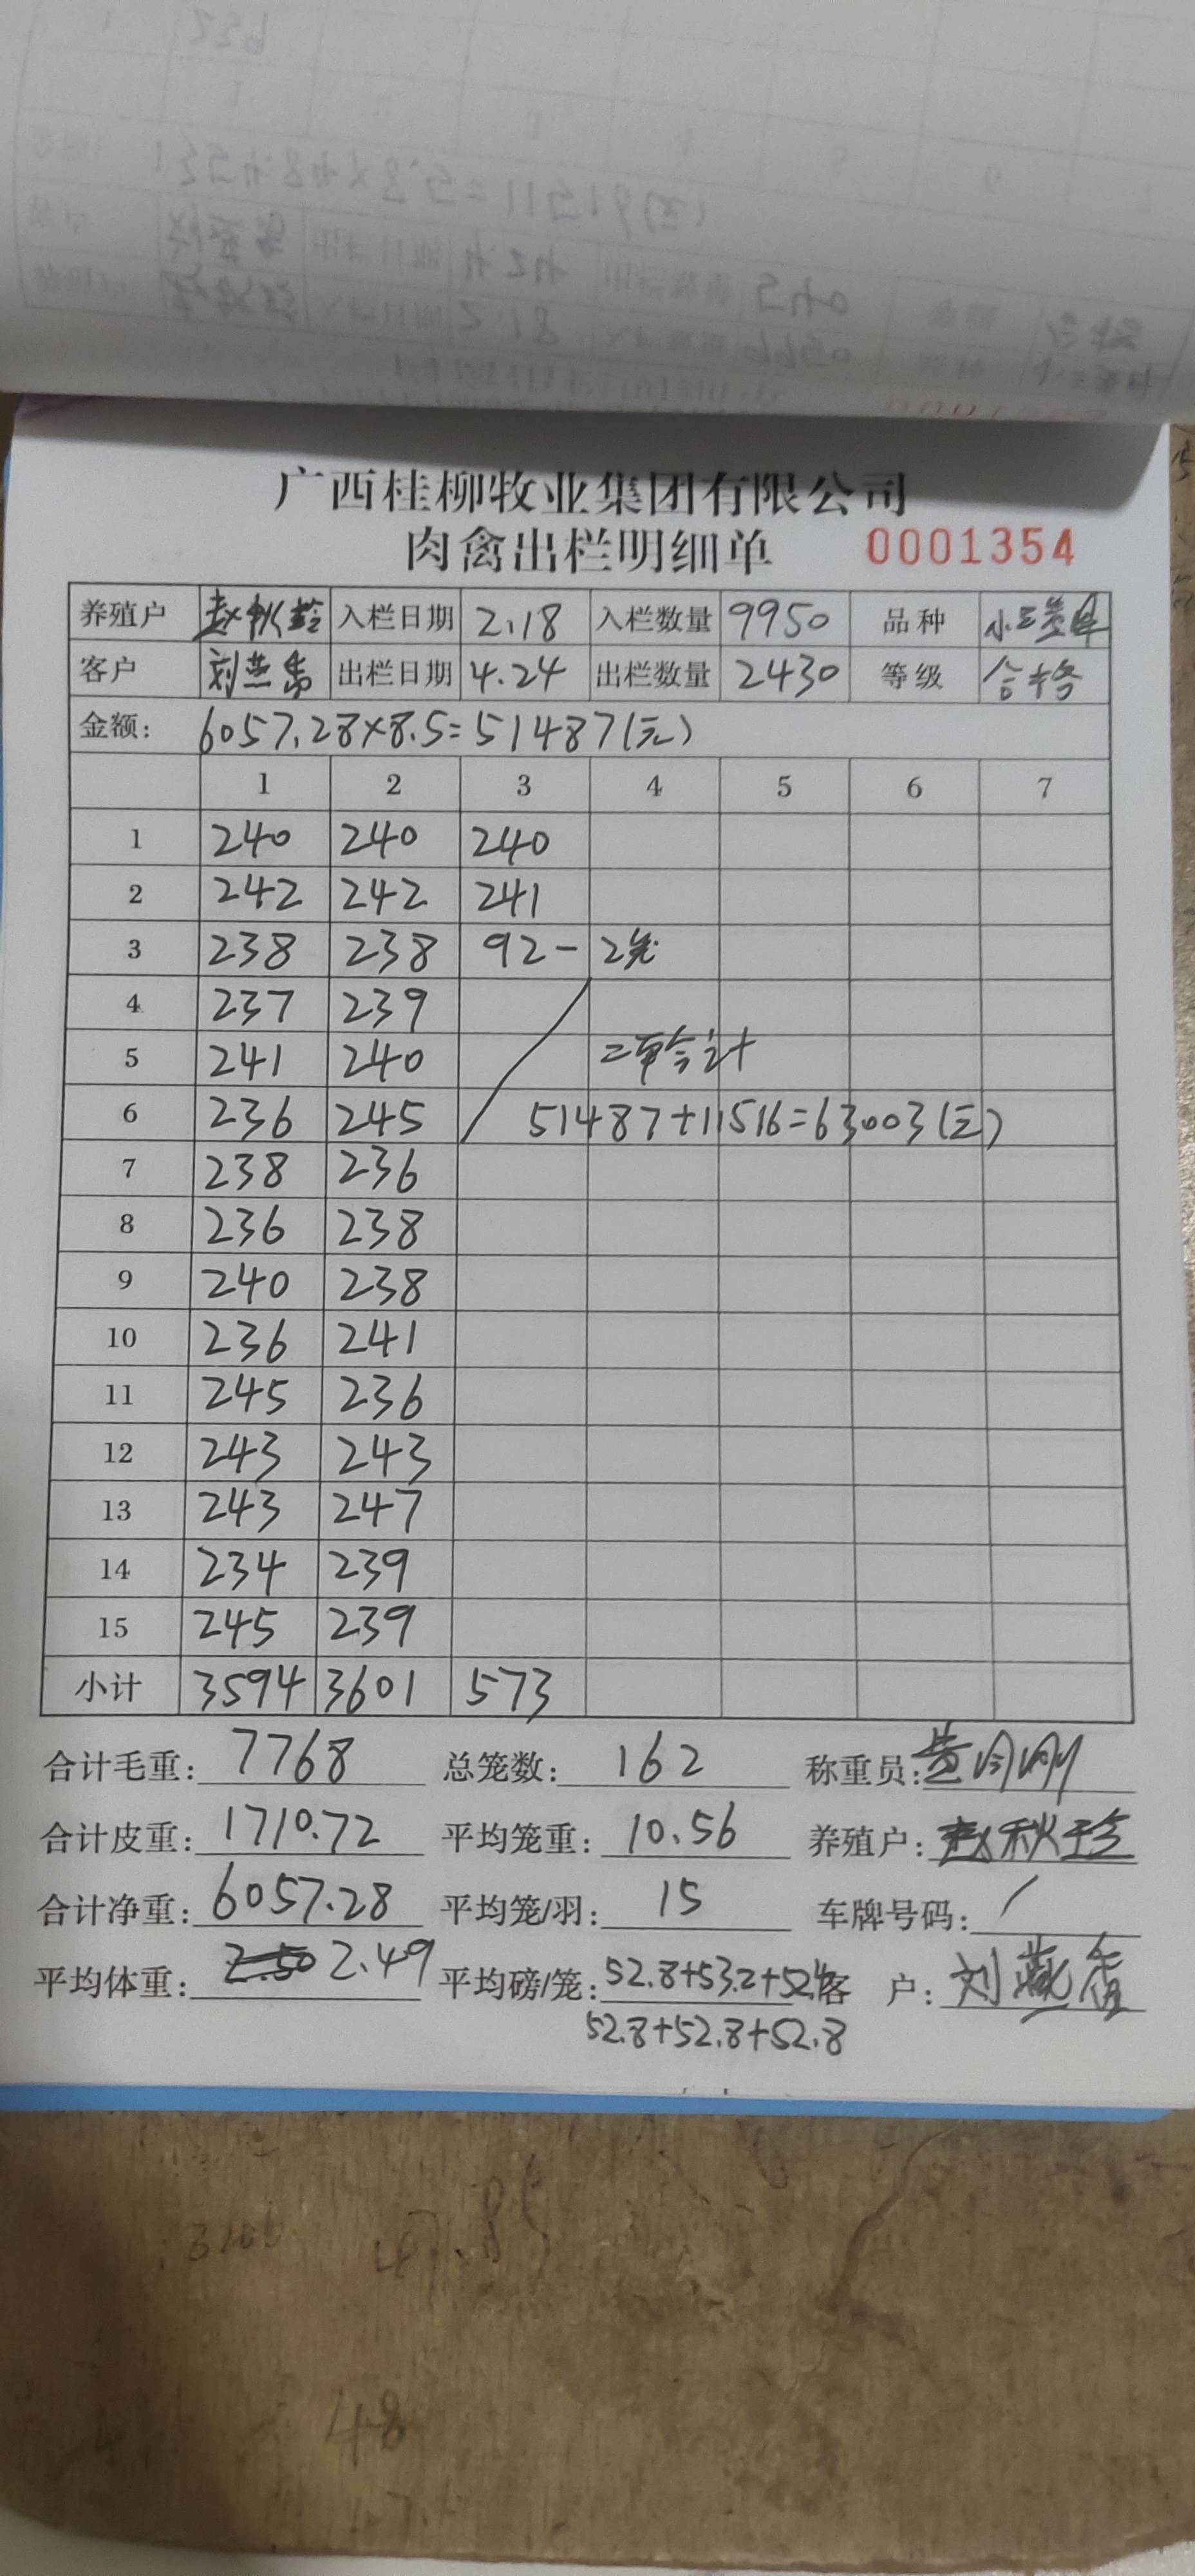 广西桂柳牧业集团有限公司
肉禽出栏明细单 0001354
养殖户 赵秋 入栏日期 2.18 入栏数量 9950 品种 小三
客户 刘燕 出栏日期 4.24 出栏数量 2430 等级 合格
金额: 6057.28×8.5=51487(元)
1 2 3 4 5 6 7
1 240 240 240
2 242 242 241
3 238 238 92-2笼
4 237 239
5 241 240 二单合计
6 236 245 51487+11516=63003(元)
7 238 236
8 236 238
9 240 238
10 236 241
11 245 236
12 243 243
13 243 247
14 234 239
15 245 239
小计 3594 3601 573
合计毛重: 7768 总笼数: 162 称重员: 黄
合计皮重: 1710.72 平均笼重: 10.56 养殖户: 赵秋珍
合计净重: 6057.28 平均笼/羽: 15 车牌号码: /
平均体重: 2.50 2.49 平均磅/笼: 52.8+53.2+52.4 客户: 刘燕
52.8+52.8+52.8
48